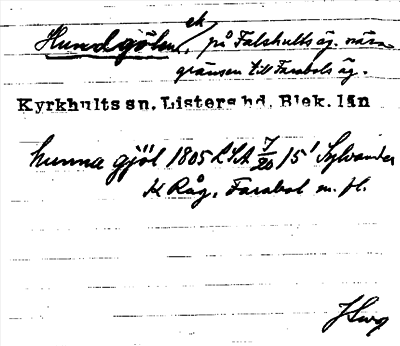 ek
Hundgölen, på Falshults äg. nära
gränsen till Farabols äg.
Kyrkhults sn. Listers hd. Blek. län
hunna gjöl 1805 LSA 7/20 15¹ Sylvander
K Råg, Farabol m. fl.